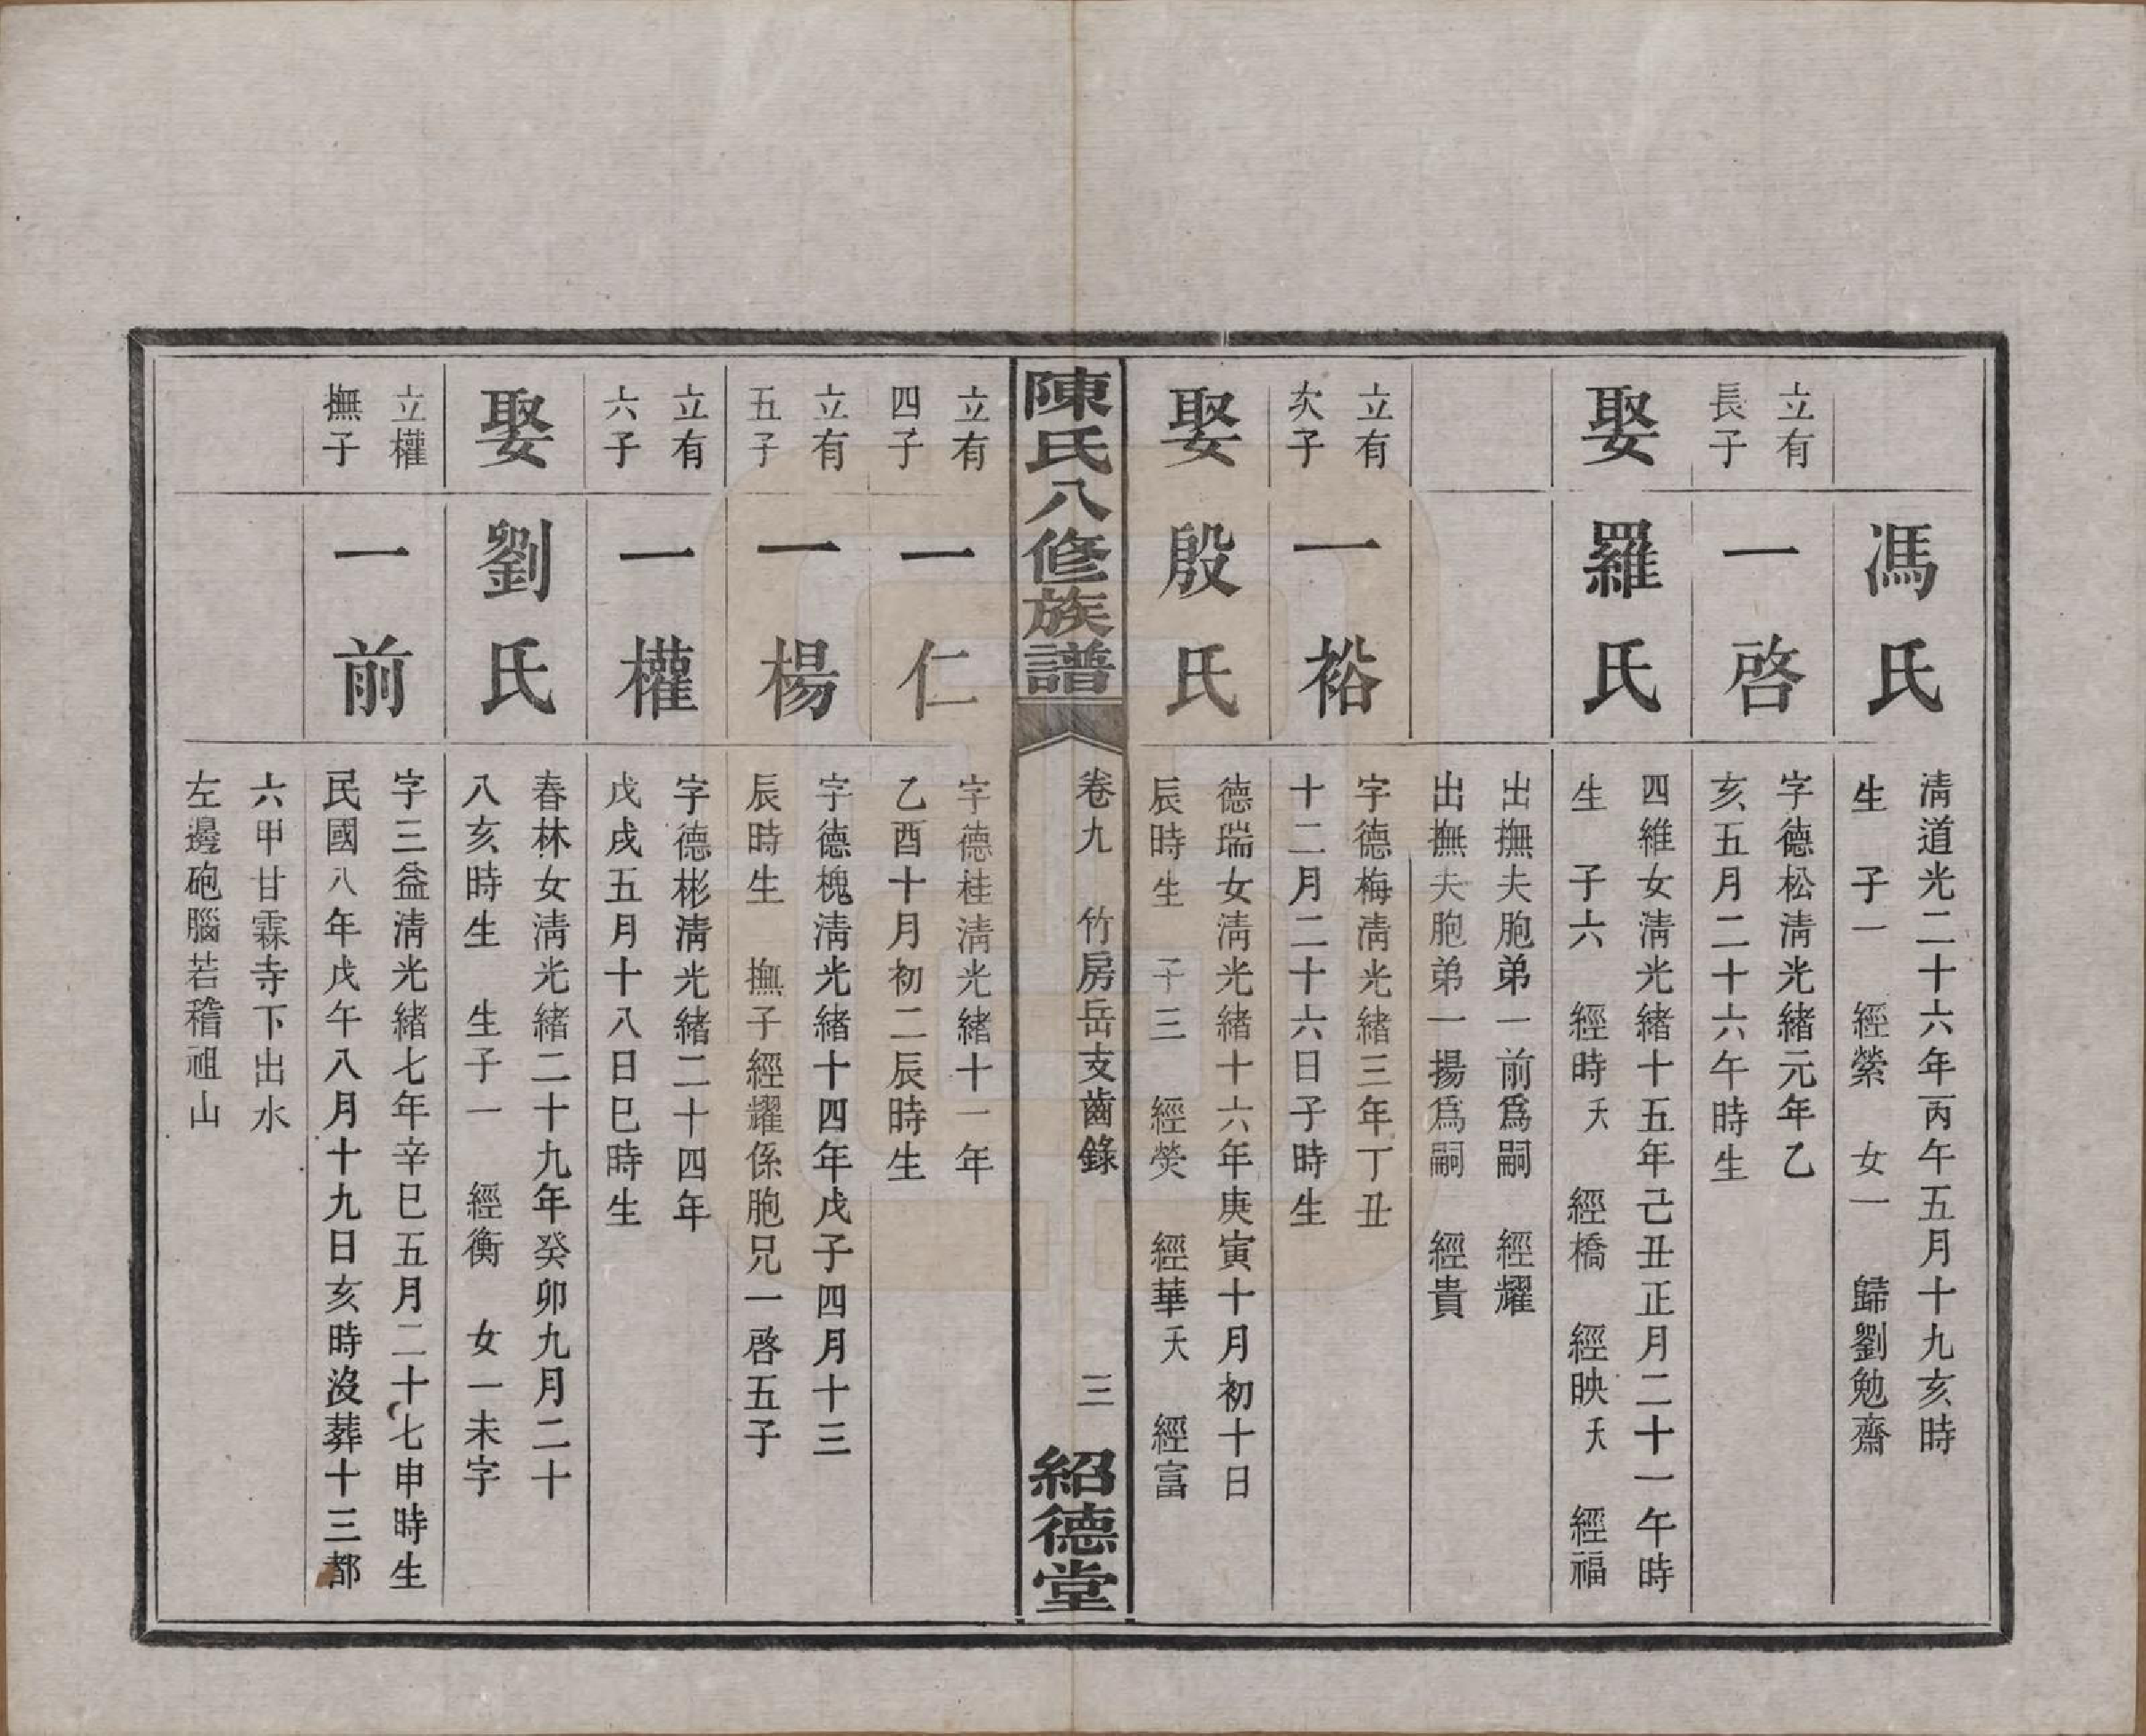 馮氏
清道光二十六年丙午五月十九亥時
生　子一　經縈　女一　歸劉勉齋
立有
長子
一啓
字德松清光緒元年乙
亥五月二十六午時生
娶
羅氏
四維女清光緒十五年己丑正月二十一午時
生　子六　經時夭　經橋　經映夭　經福
出撫夫胞弟一前爲嗣　經耀
出撫夫胞弟一揚爲嗣　經貴
立有
次子
一裕
字德梅清光緒三年丁丑
十二月二十六日子時生
娶
殷氏
德瑞女清光緒十六年庚寅十月初十日
辰時生　子三　經熒　經華夭　經富
陳氏八修族譜
卷九　竹房岳支齒錄
三
紹德堂
立有
四子
一仁
字德桂清光緒十一年
乙酉十月初二辰時生
立有
五子
一楊
字德槐清光緒十四年戊子四月十三
辰時生　撫子經耀係胞兄一啓五子
立有
六子
一權
字德彬清光緒二十四年
戊戌五月十八日巳時生
娶
劉氏
春林女清光緒二十九年癸卯九月二十
八亥時生　生子一　經衡　女一未字
立權
撫子
一前
字三益清光緒七年辛巳五月二十七申時生
民國八年戊午八月十九日亥時沒葬十三都
六甲甘霖寺下出水
左邊砲腦若稽祖山